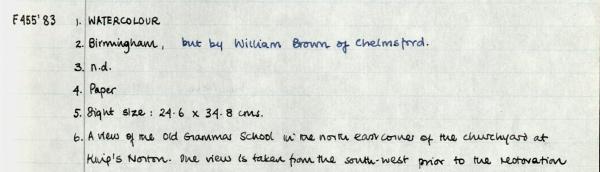 F455'83 1. WATERCOLOUR
2. Birmingham, but by William Brown of Chelmsford.
3. n.d.
4. Paper
5. Sight size: 24.6 x 34.8 cms.
6. A view of the Old Grammar School in the north east corner of the churchyard at
King's Norton. The view is taken from the south-west prior to the restoration